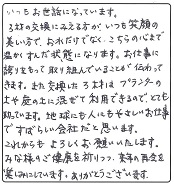 いつもお世話になっています。
うちの交換にみえる方が いつも笑顔の
美い方で、おれだけでなく、こちらの心まで
温かくすんだ状態になります。お仕事に
誇りをもって取り組んでいることが伝わって
きます。また交換した うちは プランターの
土や庭の土に混ぜて利用できるので、とても
助かっています。地球にも人にもやさしいお仕事
ですばらしい会社だと思います。
これからも よろしくお願いいたします。
みな様のご健康を祈りつつ、来年の再会を
楽しみにしています。ありがとうございます。